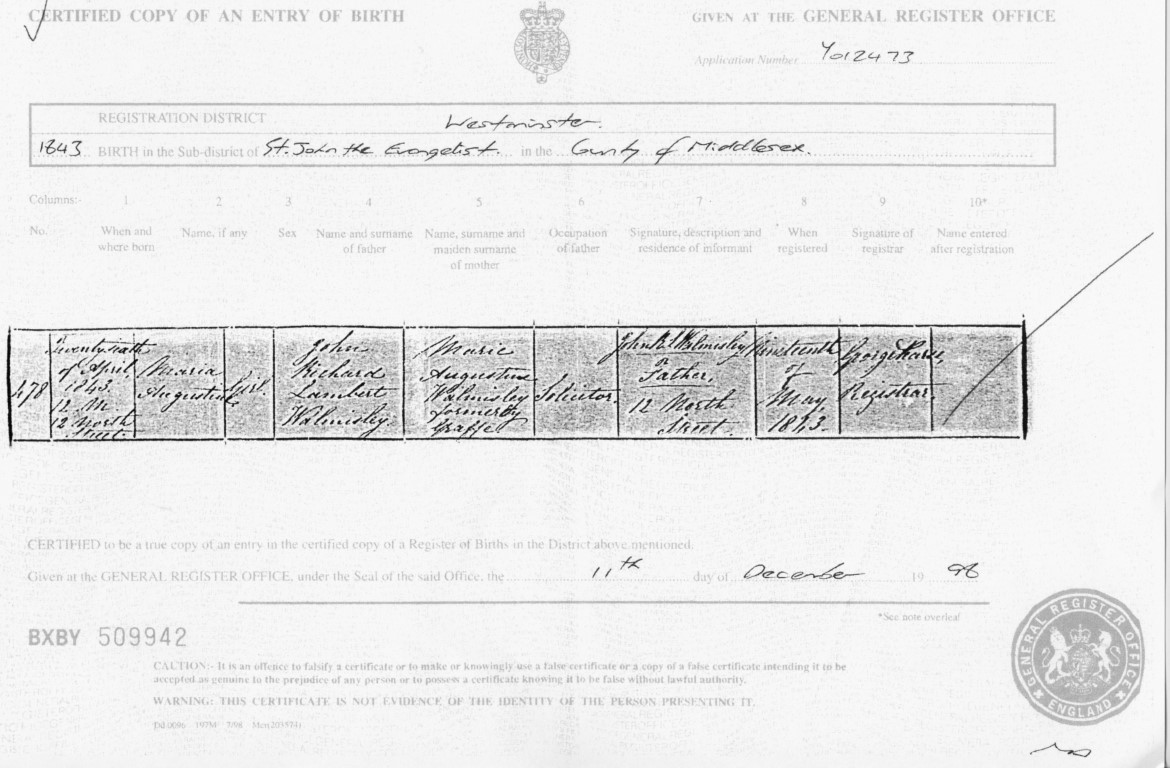 CERTIFIED COPY OF AN ENTRY OF BIRTH
GIVEN AT THE GENERAL REGISTER OFFICE
Application Number Y012473
REGISTRATION DISTRICT Westminster.
1843 BIRTH in the Sub-district of St. John the Evangelist. in the County of Middlesex.
Columns:- 1 2 3 4 5 6 7 8 9 10*
No.
When and
where born
Name, if any
Sex
Name and surname
of father
Name, surname and
maiden surname
of mother
Occupation
of father
Signature, description and
residence of informant
When
registered
Signature of
registrar
Name entered
after registration
478
of April
1843.
12
12 North
Street.
Maria
Augustine
Girl.
John
Richard
Lambert
Walmisley.
Marie
Augustine
Walmisley
formerly
Solicitor.
Walmisley
Father,
12 North
Street.
Nineteenth
of
May,
1843.
George
Registrar
CERTIFIED to be a true copy of an entry in the certified copy of a Register of Births in the District above mentioned.
Given at the GENERAL REGISTER OFFICE, under the Seal of the said Office, the 11th day of December 19 98
*See note overleaf
BXBY 509942
CAUTION:- It is an offence to falsify a certificate or to make or knowingly use a false certificate or a copy of a false certificate intending it to be
accepted as genuine to the prejudice of any person or to possess a certificate knowing it to be false without lawful authority.
WARNING: THIS CERTIFICATE IS NOT EVIDENCE OF THE IDENTITY OF THE PERSON PRESENTING IT.
GENERAL REGISTER OFFICE
ENGLAND